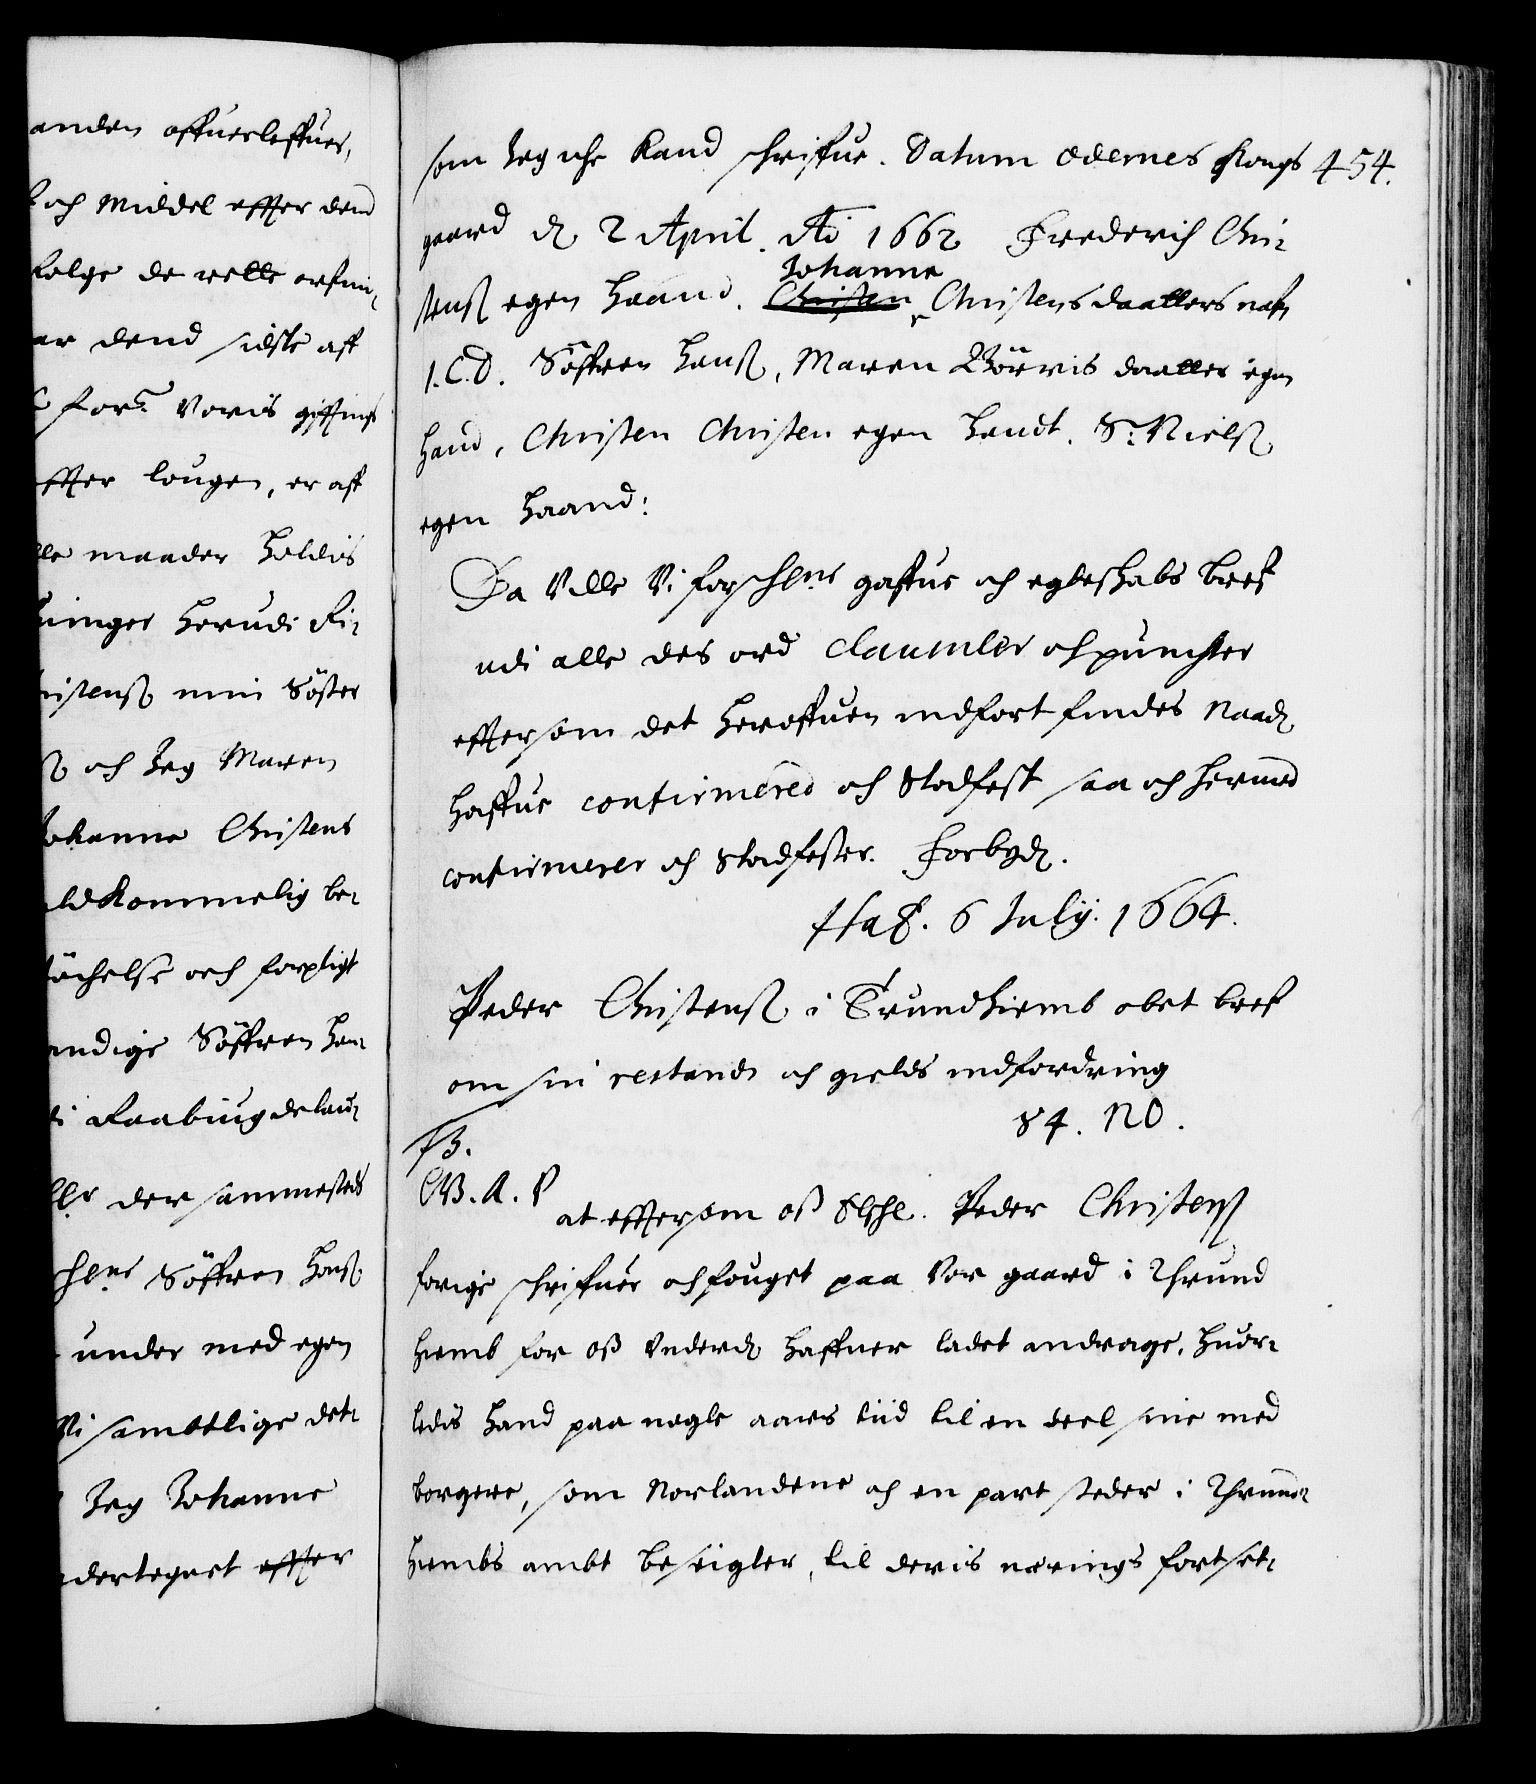 anden offuerleffuer,
och Middel effter dend
følge de rette arfuin¬
ar dend sidste aff
forͤ: voris gifftings
effter lougen, er aff
lle maader holdis
uinger herudi Fri¬
ristenß min Söster
ß och Jeg Maren
Johanne Christens
uldkommelig be¬
töchelse och forpligt
andige Söffren han¬
di Faabiug de laug
der sammesteds
hens Söffren Hanß
under med egen
Vi samtlige det¬
Jeg Johanne
dertegnet effter
som Jeg iche kand schriffue. Datum Odences Kongs 454.
gaard d 2 April. Ao 1662 Frederich Chri¬
stenß egen haand. Christen Johanne Christens daatters nafn
I.C.D. Söffren Hanß, Maren Börris daatter egen
haand, Christen Christen egen handt. S: Nielß
egen haand:
Da Ville Vi forschene gaffue och egteskabs bref
udi alle des ord Clausuler och puncter
effter som det herofuen indfort findes Naadl
haffue confirmered och Stadfest saa och hermed
confirmerer och Stadfester. Forbydl.
Haf. 6 July. 1664.
Peder Christenß i Trundhiemb obet bref
om sin restands och gields indfordring
84. NO.
F3.
G.A.V at effter som oß Elschl. Peder Christenß
forige schriffuer och fouget paa Vor gaard i Thrund
hiemb for oß Underd haffuer ladet andrage, huor¬
ledis hand paa nogle aars tiid til en deel sine med
borgere, som Norlandene och en part steder i Thrund¬
hiembs ambt besigler, til deris nerings fortset¬